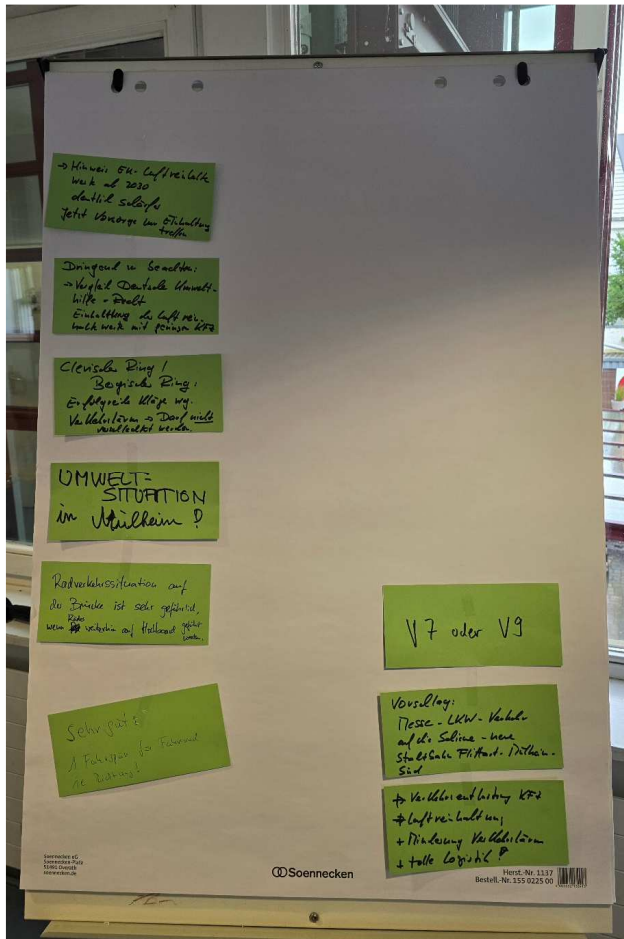 → Hinweis EU-Luftreinhalte
werte ab 2030
deutlich schärfer
Jetzt Vorsorge zur Einhaltung
treffen
Dringend zu beachten:
→ Vergleich Deutsche Umwelt-
hilfe -
Einhaltung der Luftrein-
haltewerte mit KFZ
Clevischer Ring /
Bergischer Ring:
Erfolgreiche Klage wg.
Verkehrslärm → Darf nicht
werden.
UMWELT-
SITUATION
in Mülheim!
Radverkehrssituation auf
der Brücke ist sehr gefährlich,
wenn Räder weiterhin auf Hochbord geführt
werden.
Sehr gut:
1 Fahrspur für Fahrrad
je Richtung!
V7 oder V9
Vorschlag:
Messe-LKW-Verkehr
auf die Schiene - neue
Stadtbahn Flittard-Mülheim-
Süd
→ Verkehrsentlastung KFZ
+ Luftreinhaltung
+ Minderung Verkehrslärm
+ tolle Logistik!
Soennecken eG
Soennecken-Platz
51491 Overath
soennecken.de
Soennecken
Herst.-Nr. 1137
Bestell.-Nr. 155 0225 00